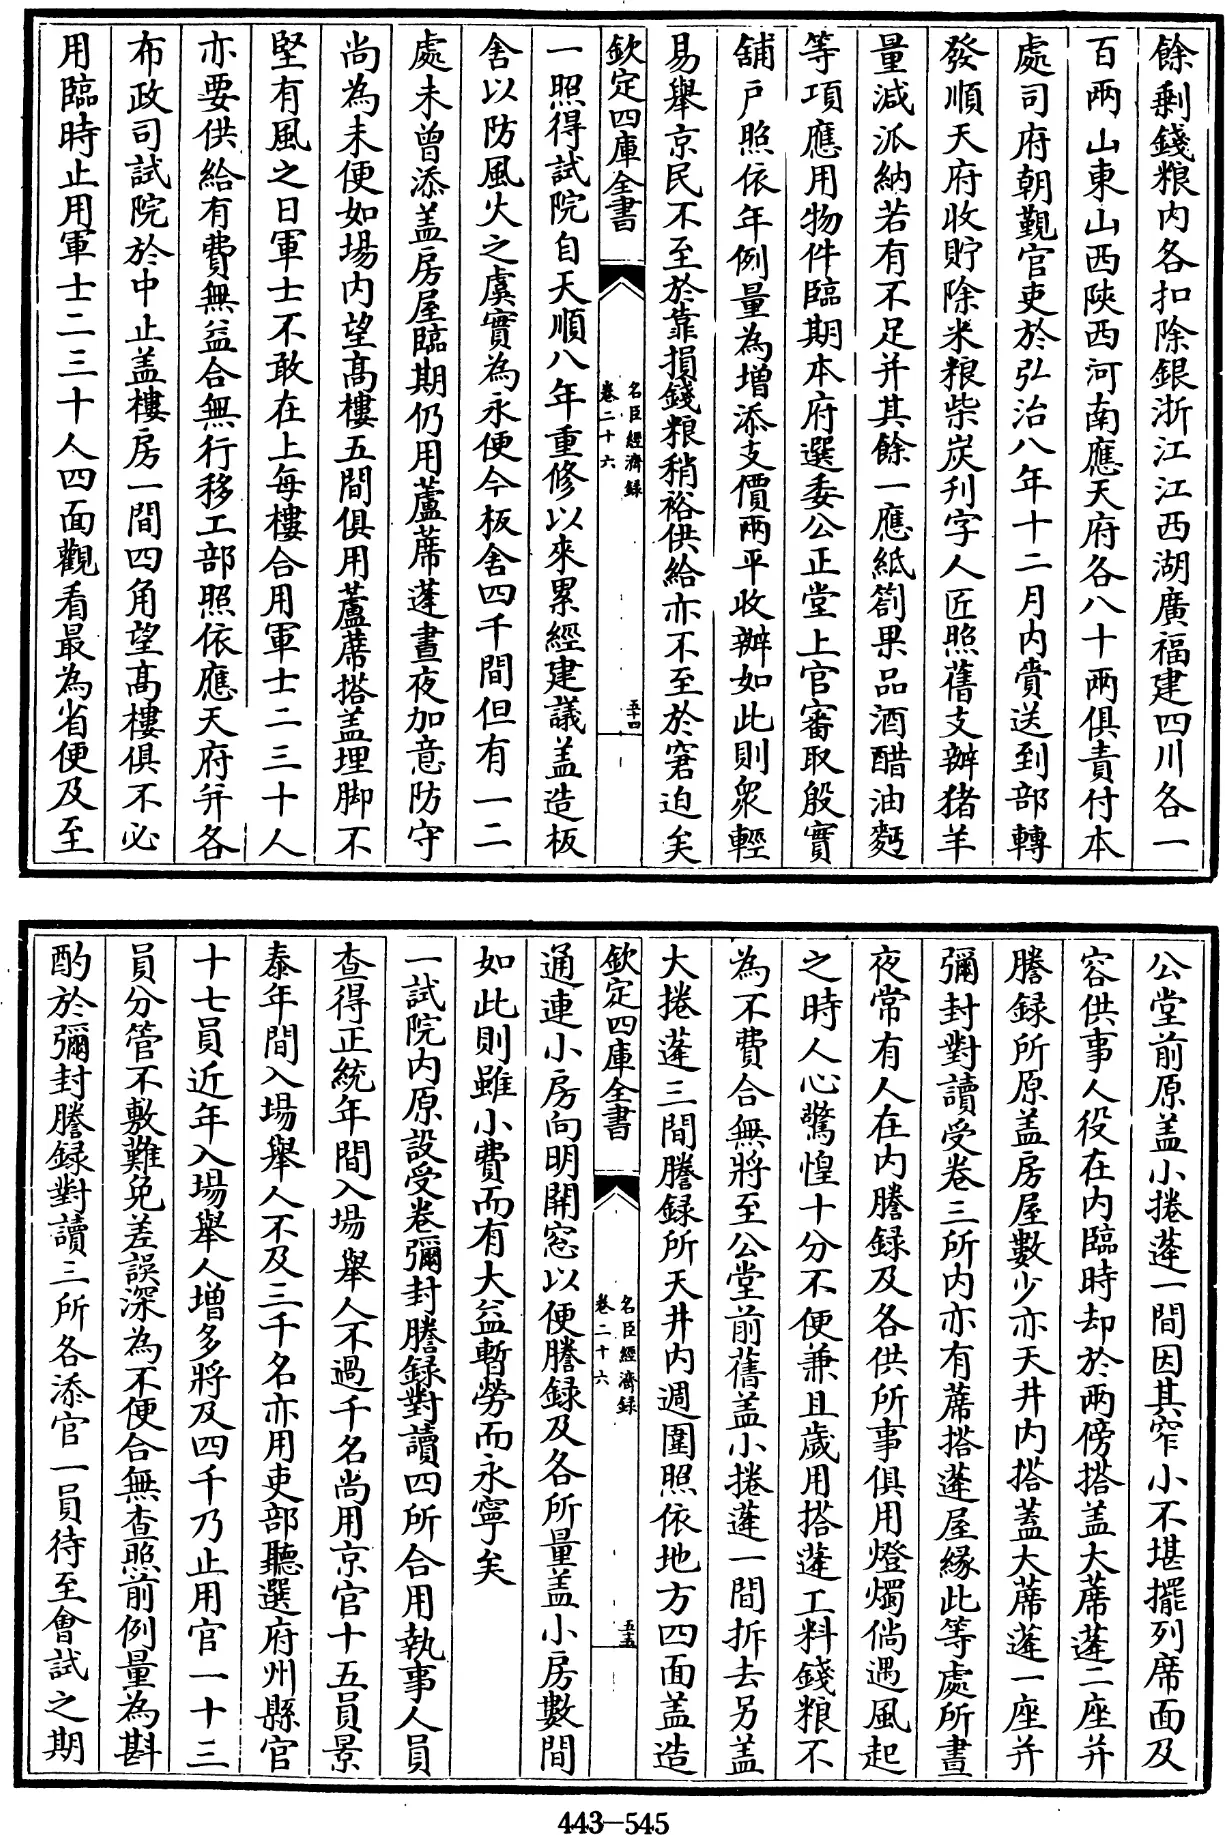 餘剩錢粮内各扣除銀浙江江西湖廣福建四川各一
百兩山東山西陜西河南應天府各八十兩俱責付本
處司府朝覲官吏於弘治八年十二月内賫送到部轉
發順天府收貯除米粮柴炭刋字人匠照舊支辦猪羊
量減派納若有不足并其餘一應紙劄果品酒醋油麫
等項應用物件臨期本府選委公正堂上官審取殷實
舖戶照依年例量為增添支價兩平收辦如此則衆輕
易舉京民不至於靠損錢粮稍裕供給亦不至於窘迫矣
欽定四庫全書
名臣經濟録
卷二十六
五十四
一照得試院自天順八年重修以來累經建議盖造板
舍以防風火之虞實為永便今板舍四千間但有一二
處未曾添盖房屋臨期仍用蘆蓆蓬晝夜加意防守
尚為未便如塲内望髙樓五間俱用蘆蓆搭盖埋脚不
堅有風之日軍士不敢在上每樓合用軍士二三十人
亦要供給有費無益合無行移工部照依應天府并各
布政司試院於中止盖樓房一間四角望髙樓俱不必
用臨時止用軍士二三十人四面觀看最為省便及至
公堂前原盖小捲蓬一間因其窄小不堪擺列席面及
容供事人役在内臨時却於兩傍搭盖大蓆蓬二座并
謄録所原盖房屋數少亦天井内搭蓋大蓆蓬一座并
彌封對讀受卷三所内亦有蓆搭蓬屋縁此等處所晝
夜常有人在内謄録及各供所事俱用燈燭倘遇風起
之時人心驚惶十分不便兼且歲用搭蓬工料錢粮不
為不費合無將至公堂前舊盖小捲蓬一間拆去另盖
大捲蓬三間謄録所天井内週圍照依地方四面盖造
欽定四庫全書
名臣經濟録
卷二十六
五十五
通連小房向明開窓以便謄録及各所量盖小房數間
如此則雖小費而有大益暫勞而永寧矣
一試院内原設受卷彌封謄録對讀四所合用執事人員
查得正統年間入塲舉人不過千名尚用京官十五員景
泰年間入塲舉人不及三千名亦用吏部聽選府州縣官
十七員近年入塲舉人增多將及四千乃止用官一十三
員分管不敷難免差誤深為不便合無查照前例量為斟
酌於彌封謄録對讀三所各添官一員待至會試之期
443—545